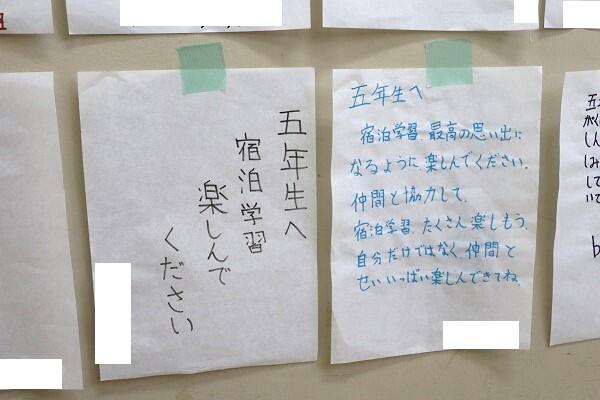 五年生へ
宿泊学習
楽しんで
ください
五年生へ
宿泊学習、最高の思い出に
なるように、楽しんでください。
仲間と協力して、
宿泊学習、たくさん楽しもう。
自分だけではなく、仲間と
せいいっぱい楽しんできてね。